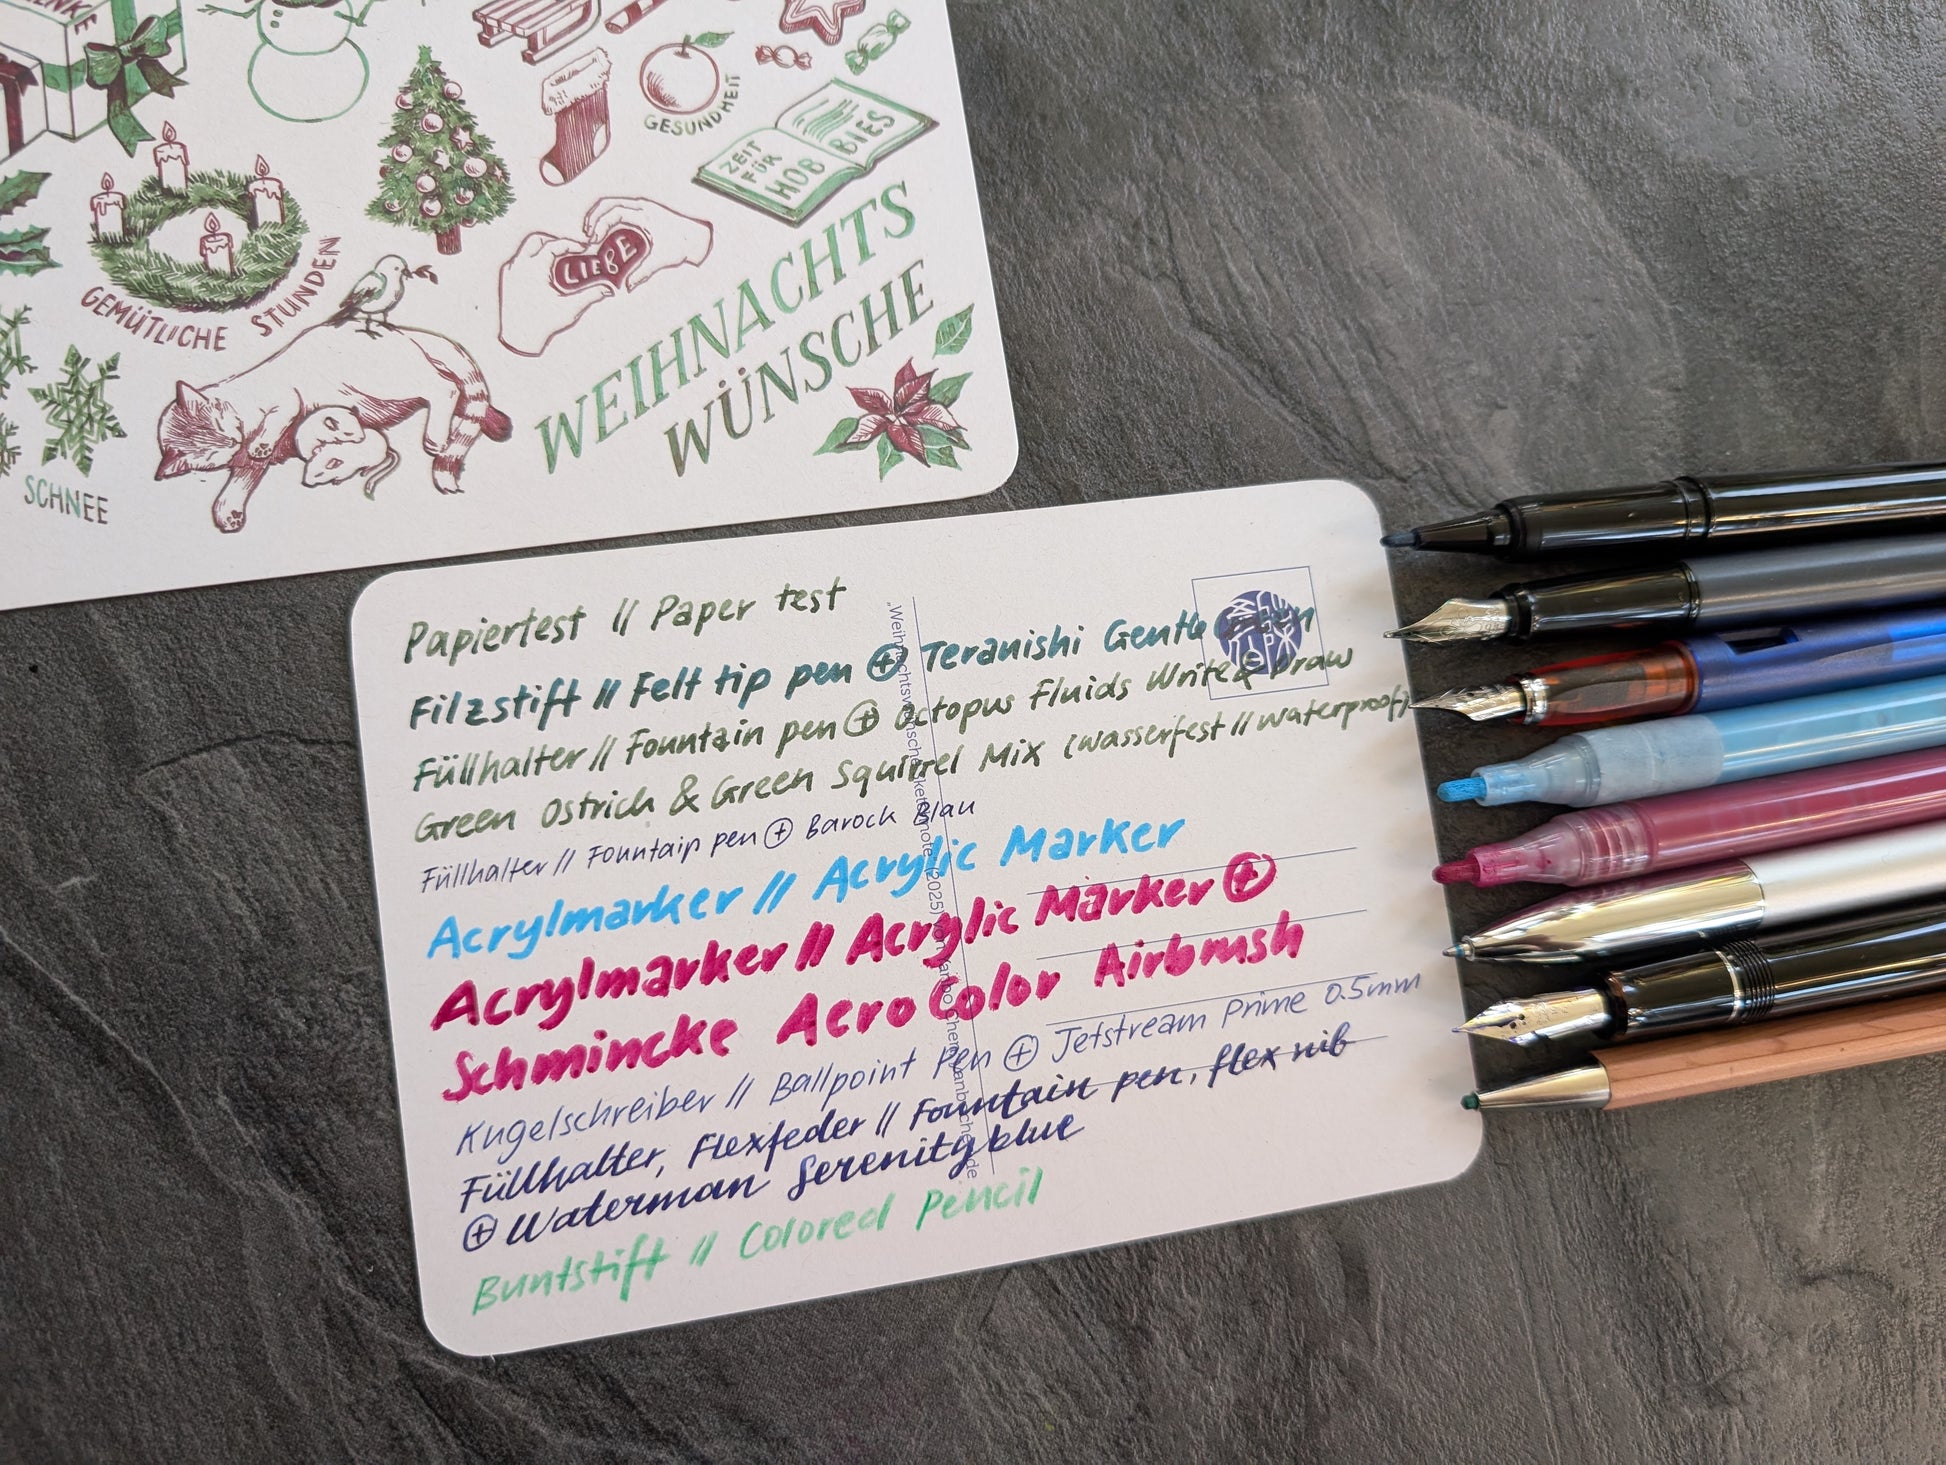 GEMÜTLICHE STUNDEN
SCHNEE
GESUNDHEIT
ZEIT
FÜR
HOB BIES
LIEBE
WEIHNACHTS
WÜNSCHE
Papiertest // Paper test
Filzstift // Felt tip pen ⊕ Teranishi
Füllhalter // Fountain pen ⊕ Octopus Fluids Write & Draw
Green Ostrich & Green Squirrel Mix (wasserfest // waterproof)
Füllhalter // Fountain pen ⊕ Barock Blau
Acrylmarker // Acrylic Marker
Acrylmarker // Acrylic Marker ⊕
Schmincke Aero Color Airbrush
Kugelschreiber // Ballpoint Pen ⊕ Jetstream Prime 0.5mm
Füllhalter, Flexfeder // Fountain pen, flex nib
⊕ Waterman Serenity blue
Buntstift // Colored Pencil